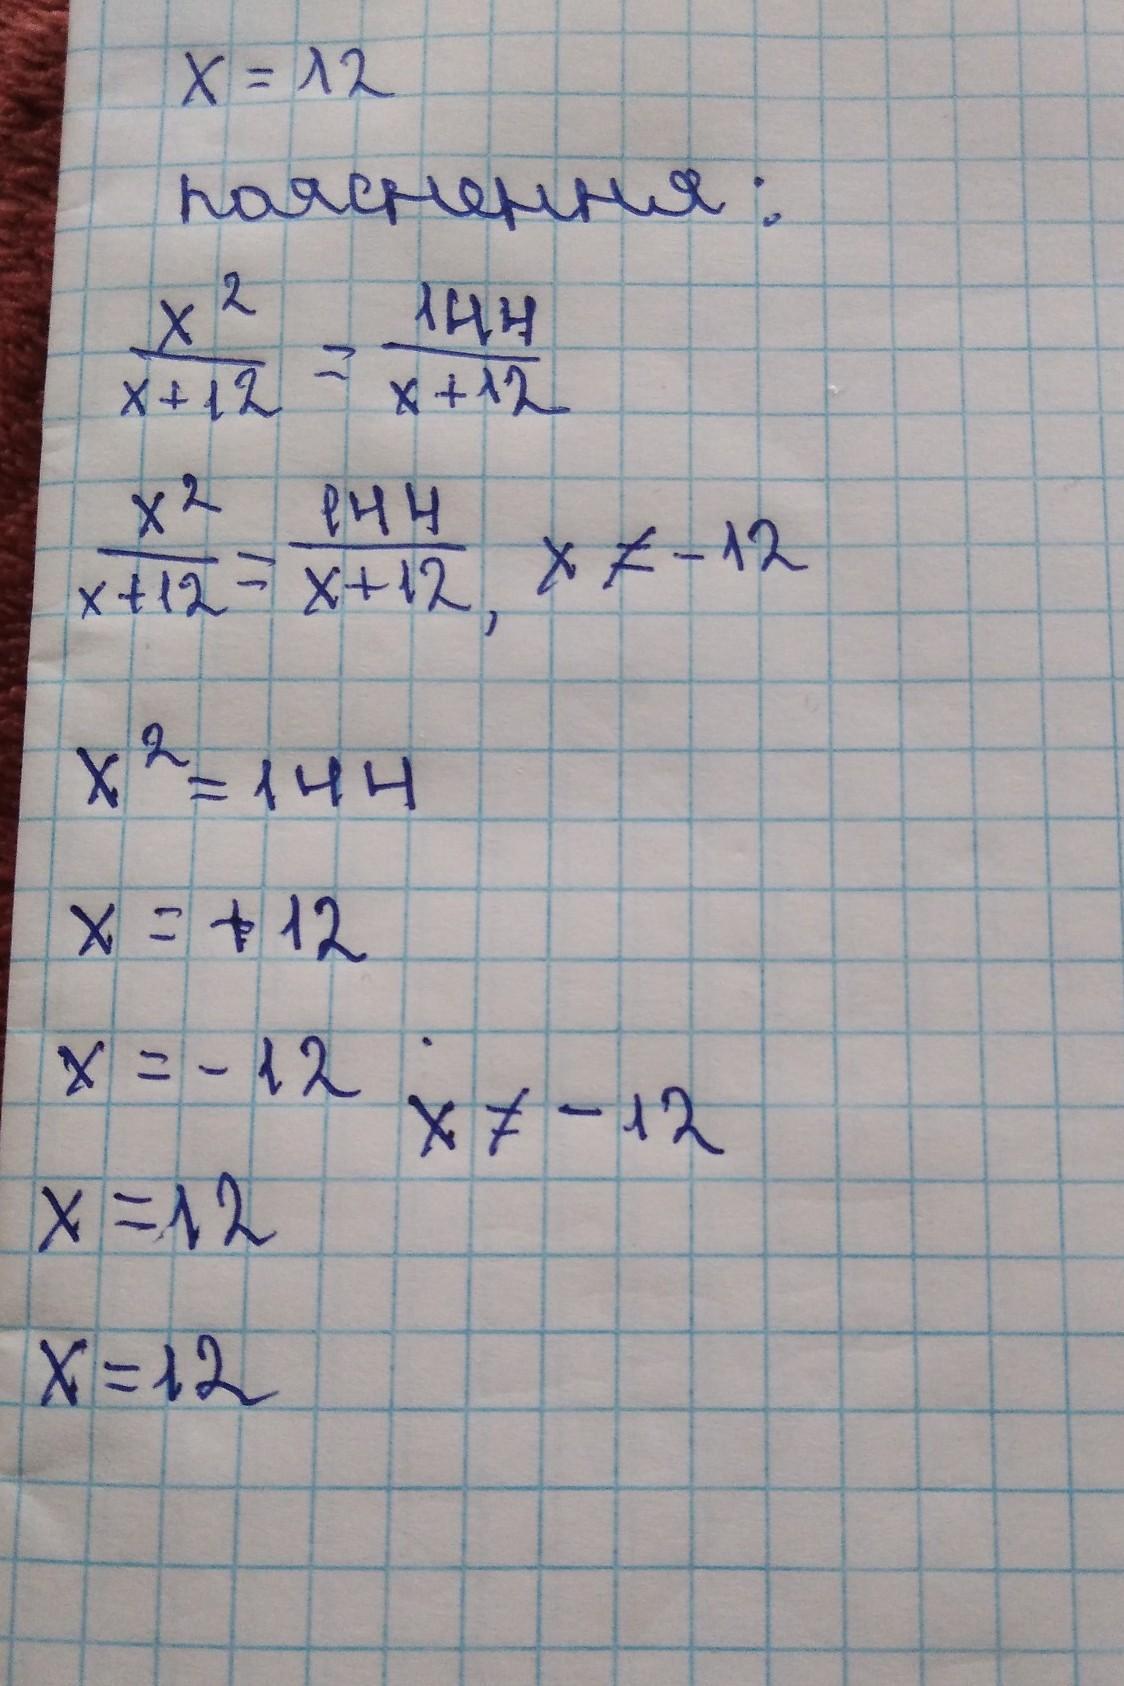 x = 12
пояснення:
x² / x+12 = 144 / x+12
x² / x+12 = 144 / x+12, x ≠ -12
x² = 144
x = +12
x = -12
x ≠ -12
x = 12
x = 12